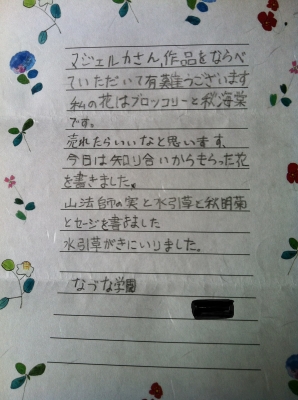 マジェルカさん、作品をならべ
ていただいて有難うございます
私の花はブロッコリーと秋海棠
です。
売れたらいいなと思います。
今日は知り合いからもらった花
を書きました。
山法師の実と水引草と秋明菊
とセージを書きました
水引草がきにいりました。
なづな学園